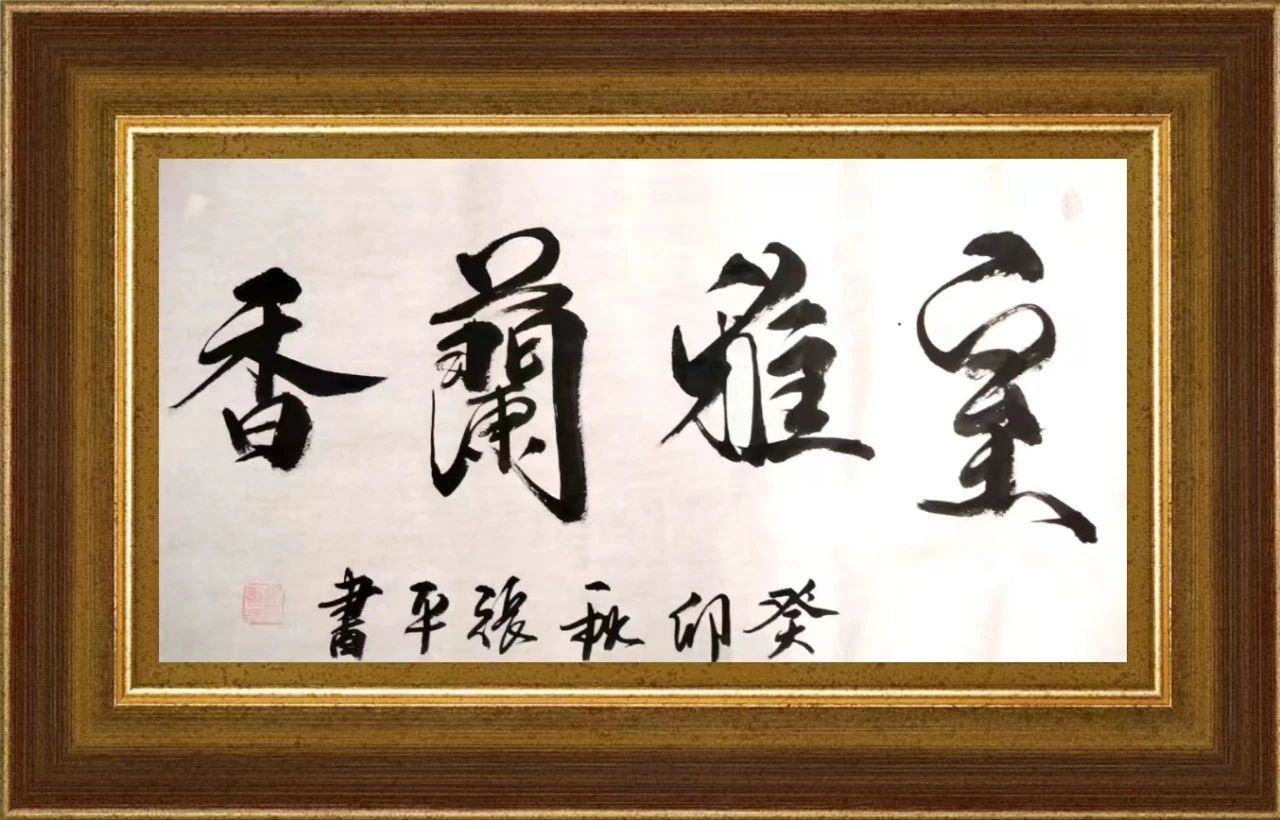 室雅蘭香
癸卯秋張平書